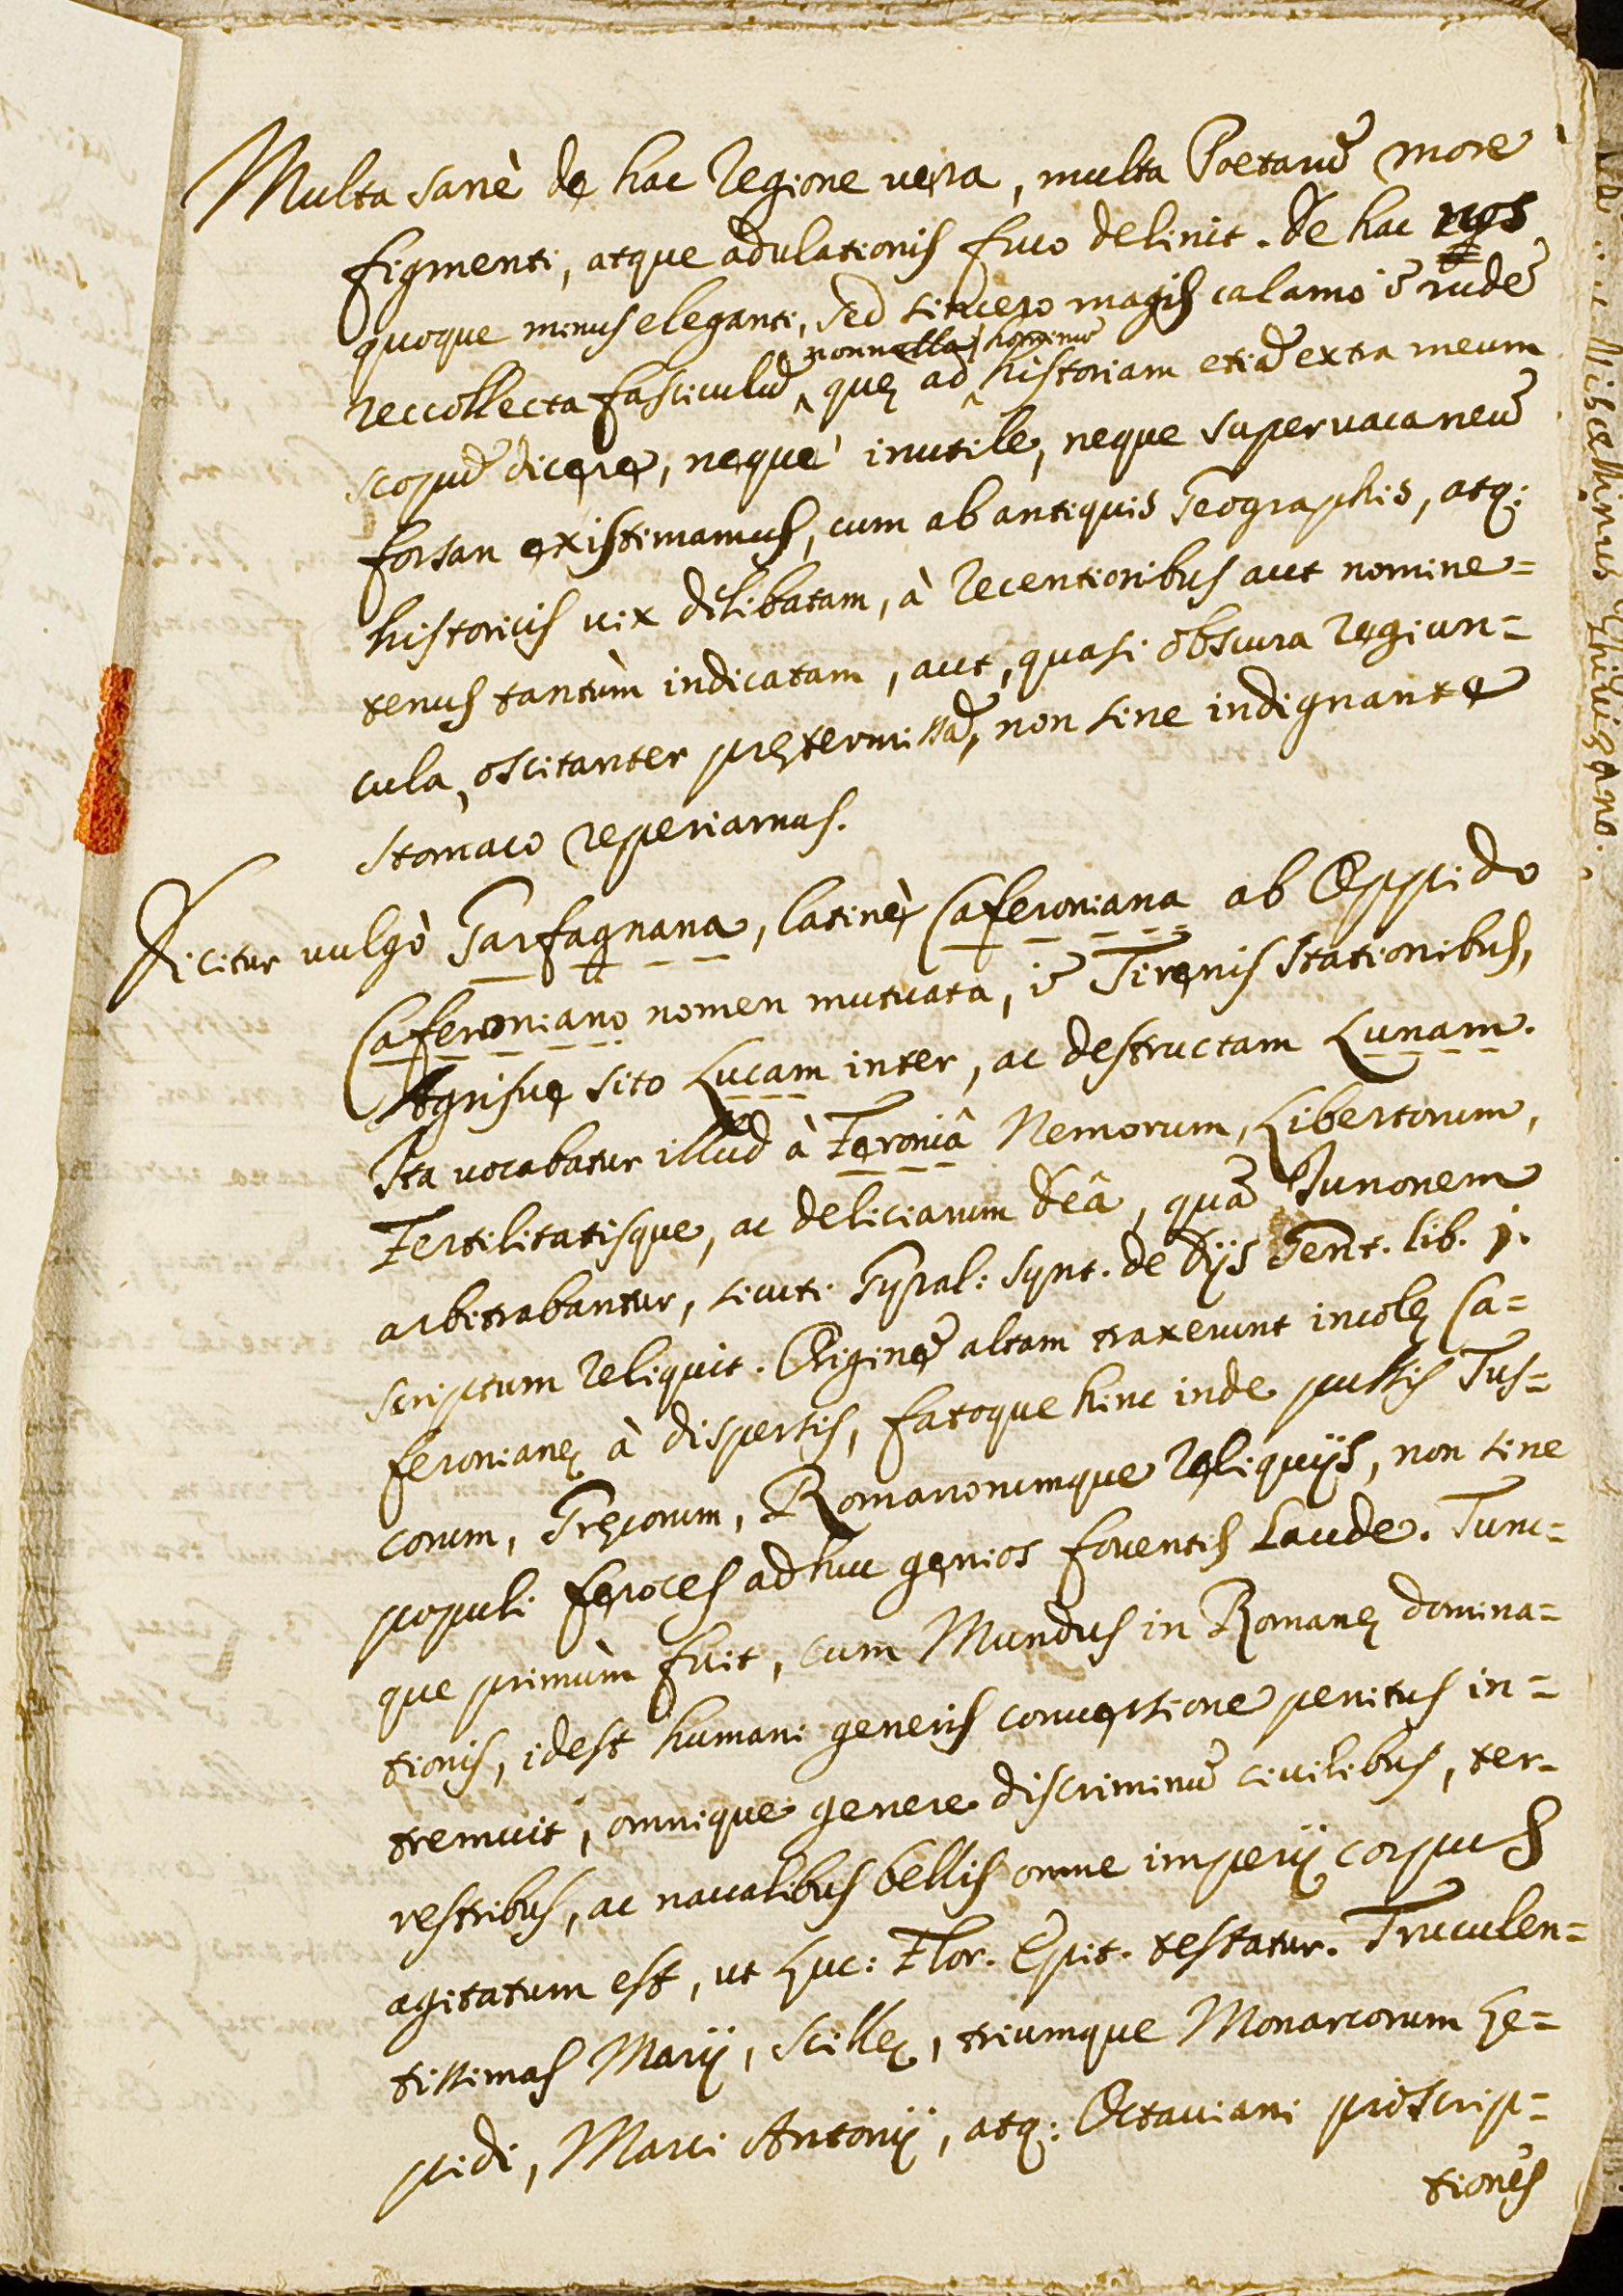 Multa sanè de hac Regione vera, multa Poetarũ more
figmenti, atque adulationis fuco delinit. De hac nos
quoque minus eleganti, sed sincero magis calamo ĩ rudẽ
nonnulla, hominũ
reccollecta fasciculũ, quę ad historiam etiã extra meum
scopũ dicere, neque inutile, neque supervacaneũ
forsan existimamus, cum ab antiquis Geographis, atq:
historicis vix delibatam, à recentioribus aut nomine=
tenus tantùm indicatam, aut, quasi obscura regiun=
cula, oscitanter prętermissã, non sine indignante
stomaco reperiamus.
Dicitur vulgò Garfagnana, latinè Caferoniana ab Oppido
Caferoniano nomen mutuata, ĩ Tirenis stationibus,
Agrisue sito Lucam inter, ac destructam Lunam.
Ita vocabatur illud à Feroniâ Nemorum, Libertorum,
Fertilitatisque, ac deliciarum Deâ, quã Junonem
arbitrabantur, sicuti Gyral: Synt. de Dijs Gent. lib. j.
scriptum reliquit. Originẽ altam traxerunt incolę Ca=
feronianę à dispersis, fatoque hinc inde pulsis Tus=
corum, Gręcorum, Romanorumque reliquijs, non sine
populi feroces adhuc genios foventis laude. Tunc=
que primùm fuit, cum Mundus in Romanę domina=
tionis, idest humani generis conversione penitus in=
tremuit, omnique genere discriminũ civilibus, ter=
restribus, ac navalibus bellis omne imperij corpus
agitatum est, ut Luc: Flor. Epit. testatur. Truculen=
tissimas Marij, Scillę, triumque Monarcorum Le=
pidi, Marci Antonij, atq: Octaviani proscrip=
tiones
Michaelli
Ghivizano.